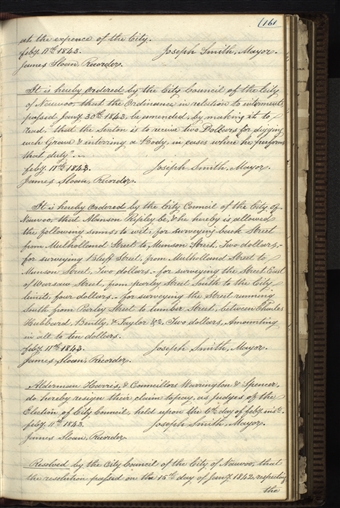 (161
at the expence of the City.
Feby. 11th 1843. Joseph Smith, Mayor.
James Sloan, Recorder.
It is hereby Ordered by the City Council of the City
of Nauvoo, that the Ordinance in relation to interments
passed Jany. 30th 1843. be amended, by making it to
read: that the Sexton is to receive two Dollars for digging
each Grave & interring a Body, in cases where he performs
that duty.
Feby. 11th 1843. Joseph Smith, Mayor.
James Sloan, Recorder.
It is hereby Ordered by the City Council of the City of
Nauvoo, that Alanson Ripley be, & he hereby is allowed
the following sums to wit: for surveying back Street
from Mulholland Street to Munson Street, Two dollars,
for surveying Bluff Street, from Mulholland Street to
Munson Street, Two dollars. for surveying the Street East
of Warsaw Street, from parley Street South to the City
limits, four dollars. for surveying the Street running
South from Parley Street to Lumber Street, between Charles
Hubbard, Bently, & Taylor &c. Two dollars, Amounting
in all to ten dollars.
Feby. 11th 1843. Joseph Smith, Mayor.
James Sloan, Recorder.
Alderman Harris, & Councillors Warrington & Spencer,
do hereby resign their claim to pay, as judges of the
Election of City Council, held upon the 6th day of Feby. inst.
Feby. 11th 1843. Joseph Smith, Mayor.
James Sloan, Recorder.
Resolved by the City Council of the City of Nauvoo, that
the resolution passed on the 15th day of Jany. 1842, respecting
the